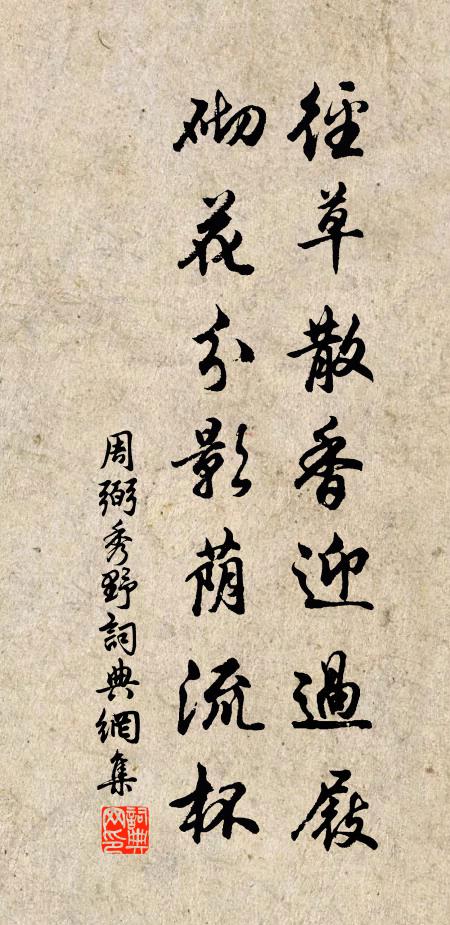 徑草散香迎過屐
砌花分影蔭流杯
周弼秀野詞典網集
詞典網印